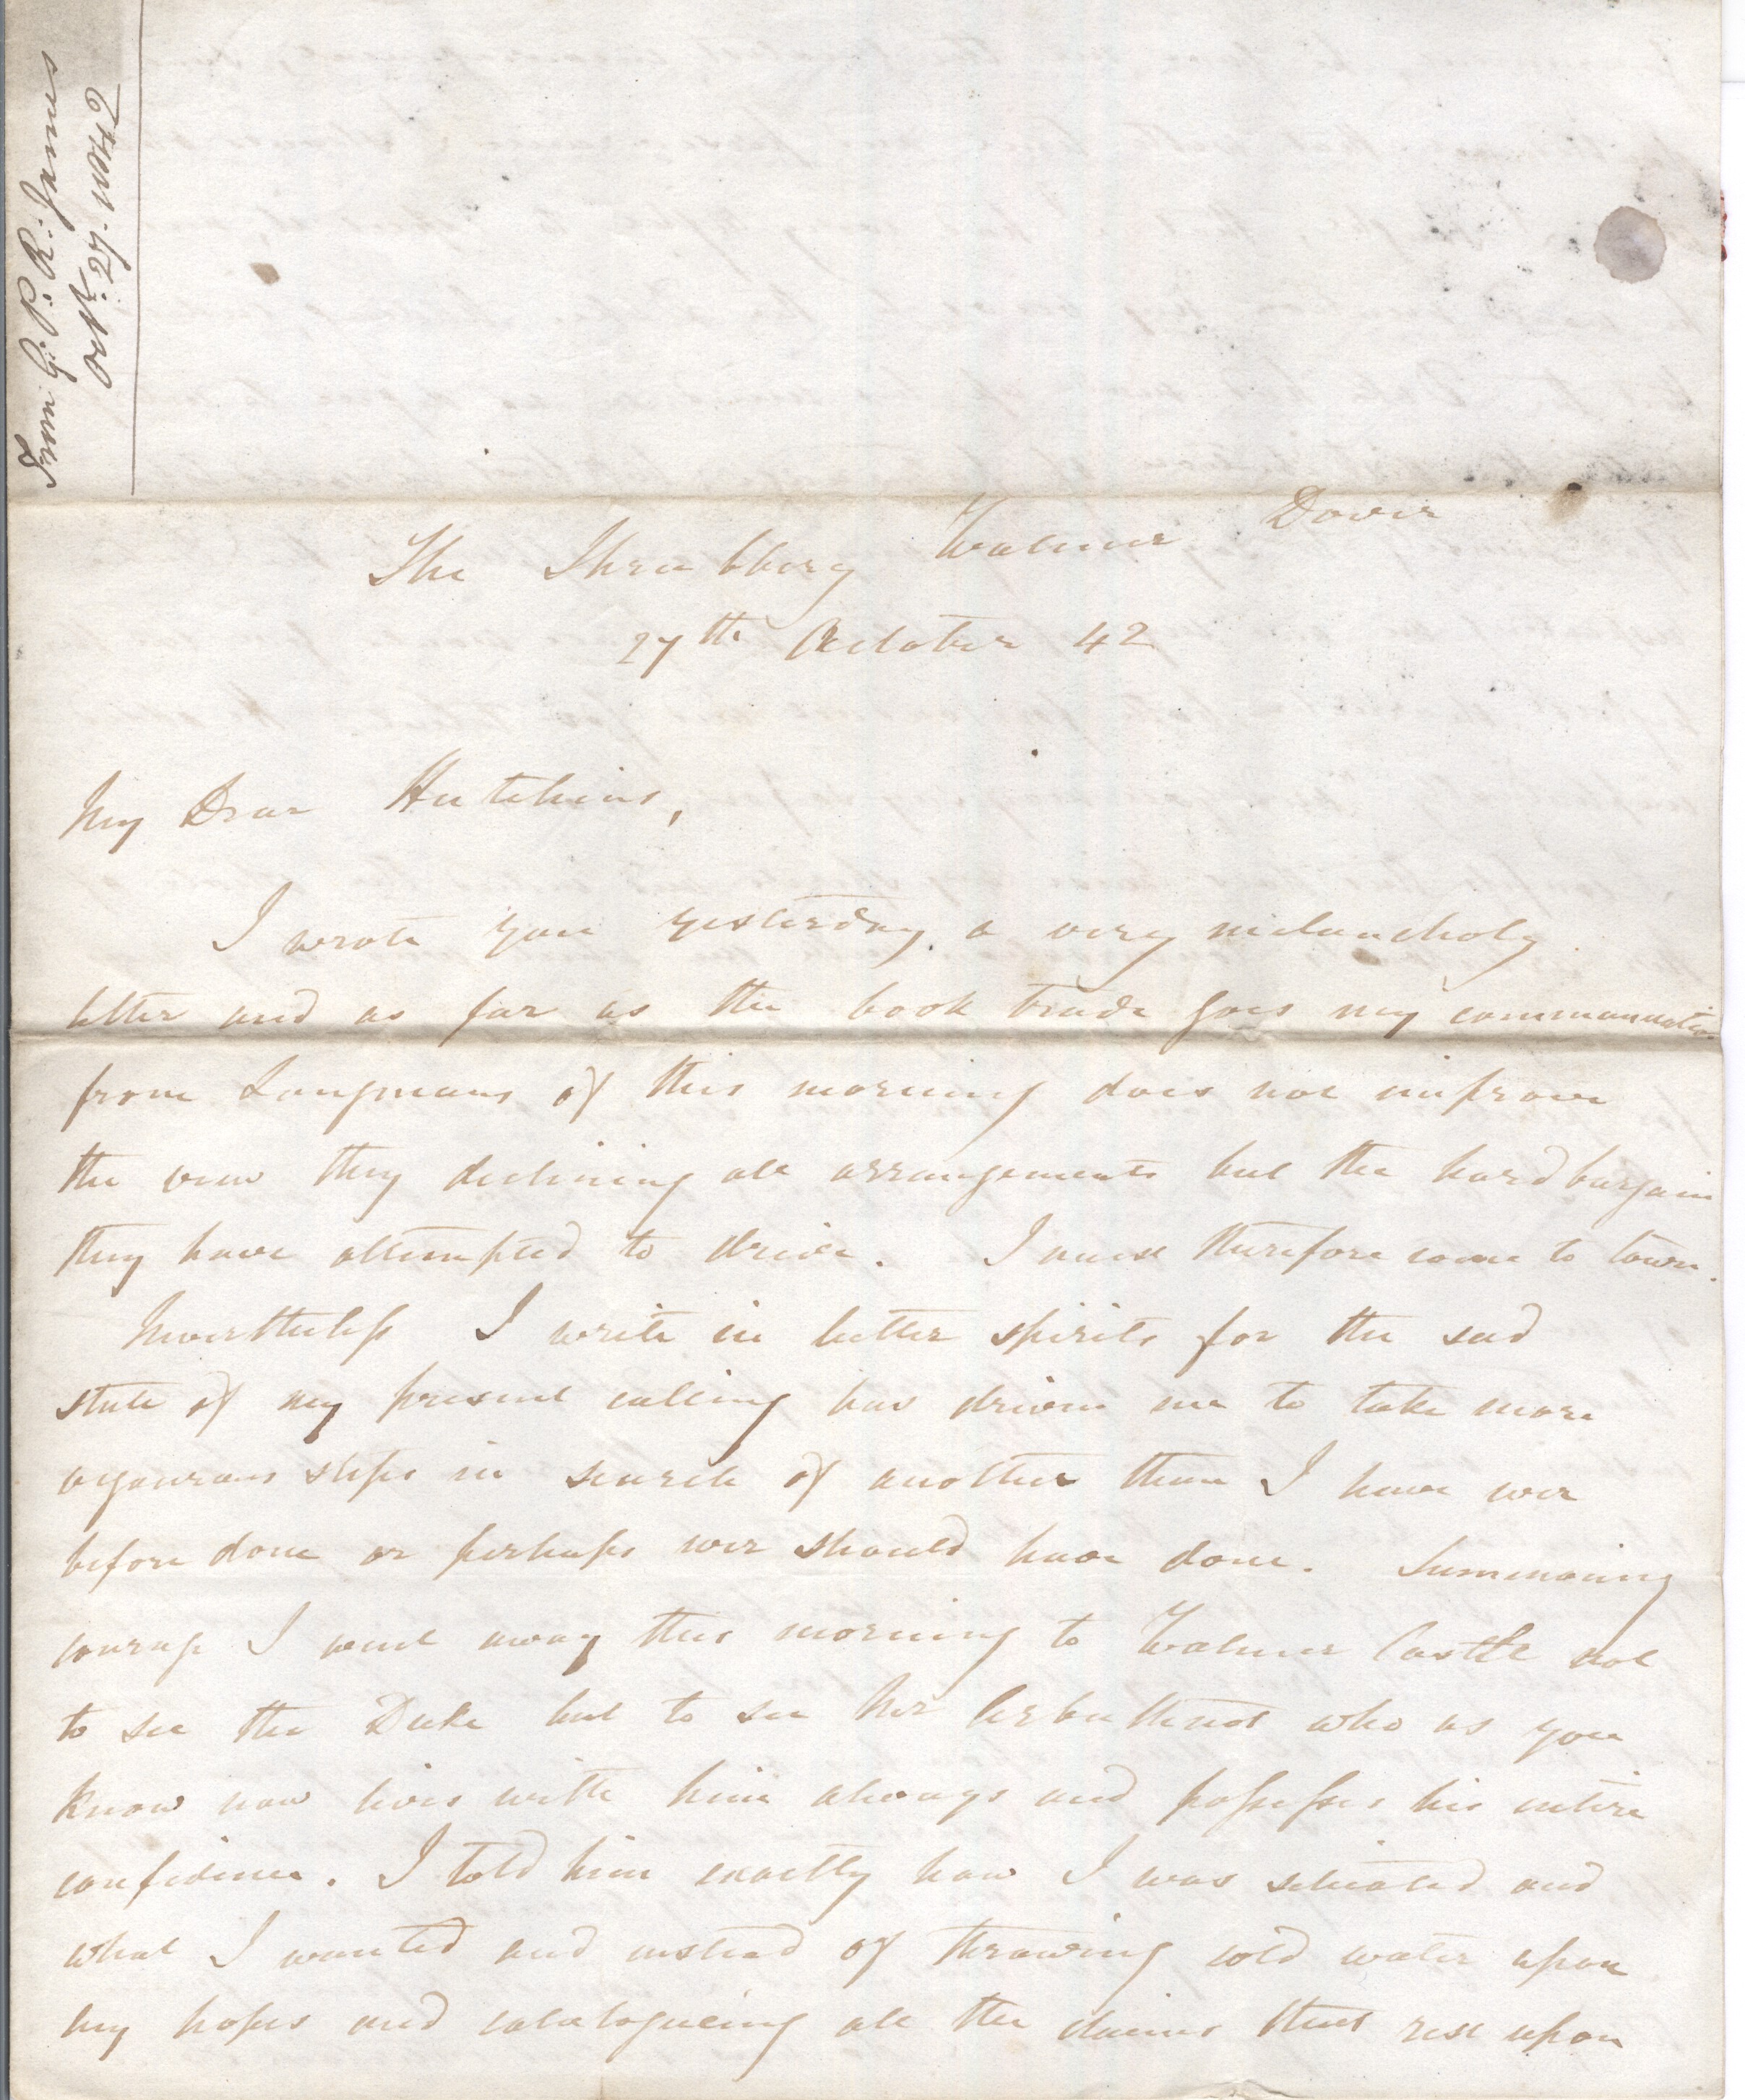 From G. P. R. James
Oct. 27. 1842
The Shrubbery Walmer Dover
27th October 42
My Dear Hutchins,
I wrote you yesterday a very melancholy
letter and as far as the book trade goes my communication
from Longmans of this morning does not improve
the view they declining all arrangements but the hard bargain
they have attempted to drive. I must therefore come to town.
Nevertheless I write in better spirits for the sad
state of my present calling has driven me to take more
vigourous steps in search of another than I have ever
before done or perhaps ever should have done. Summoning
courage I went away this morning to Walmer Castle not
to see the Duke but to see Mr Arbuthnot who as you
know now lives with him always and possesses his entire
confidence. I told him exactly how I was situated and
what I wanted and instead of throwing cold water upon
my hopes and catalogueing all the claims that rest upon